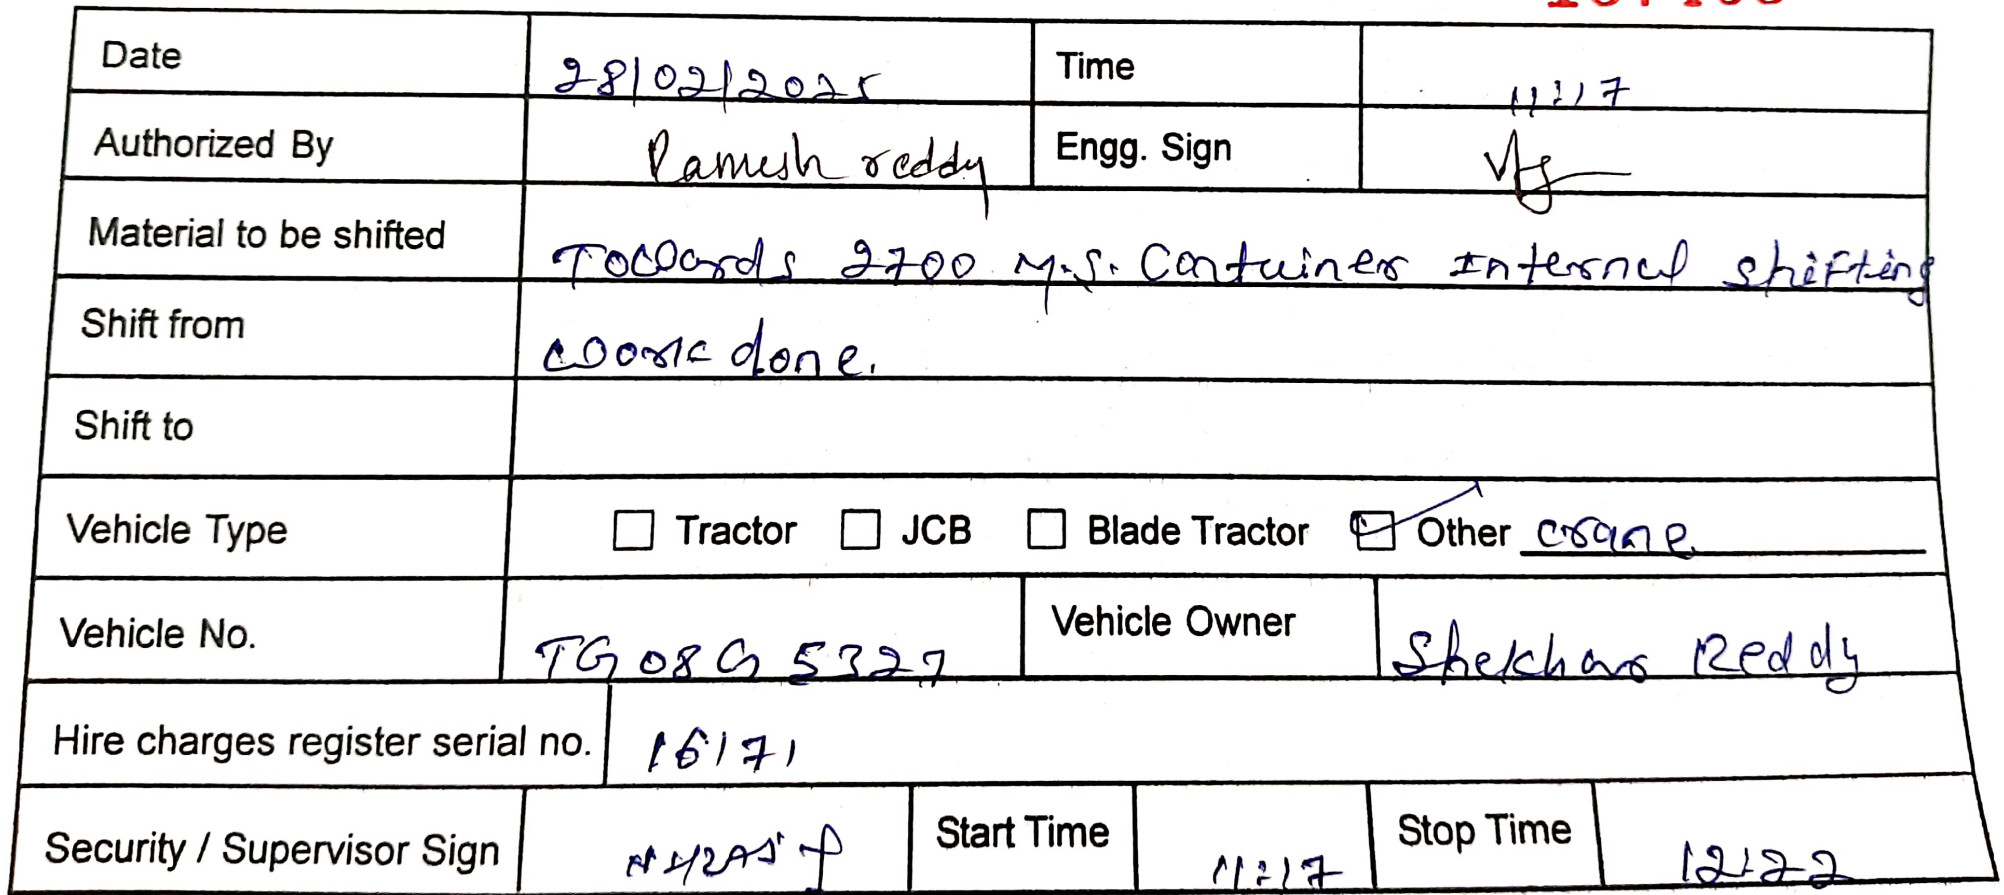 Date 28/02/2025 Time 11:17
Authorized By Ramesh reddy Engg. Sign
Material to be shifted Towards 2700 M.S. Container Internal shifting
Shift from work done.
Shift to
Vehicle Type Tractor JCB Blade Tractor Other crane
Vehicle No. TG08G 5327 Vehicle Owner Shekhar Reddy
Hire charges register serial no. 16171
Security / Supervisor Sign Start Time 11:17 Stop Time 12:22